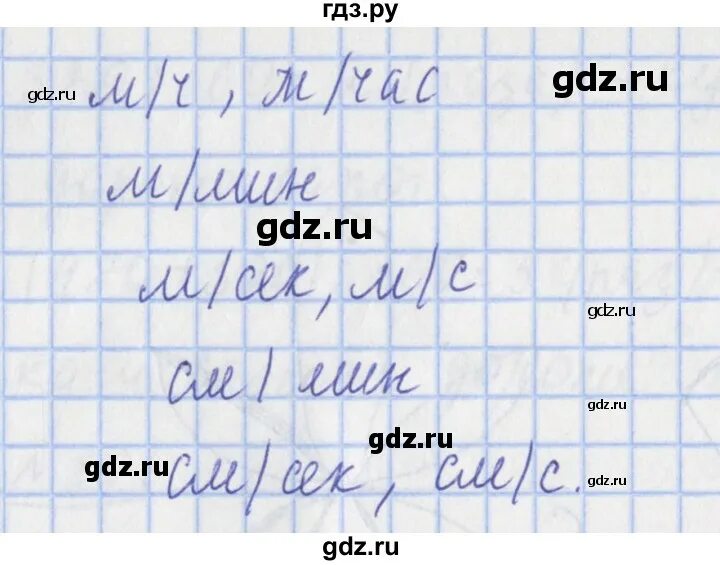 гдз.ру
gdz.ru м/ч, м/час gdz.ru
м/мин
gdz.ru
м/сек, м/с
gdz.ru
см/мин
gdz.ru
gdz.ru
gdz.ru см/сек, см/с. gdz.ru
gdz.ru